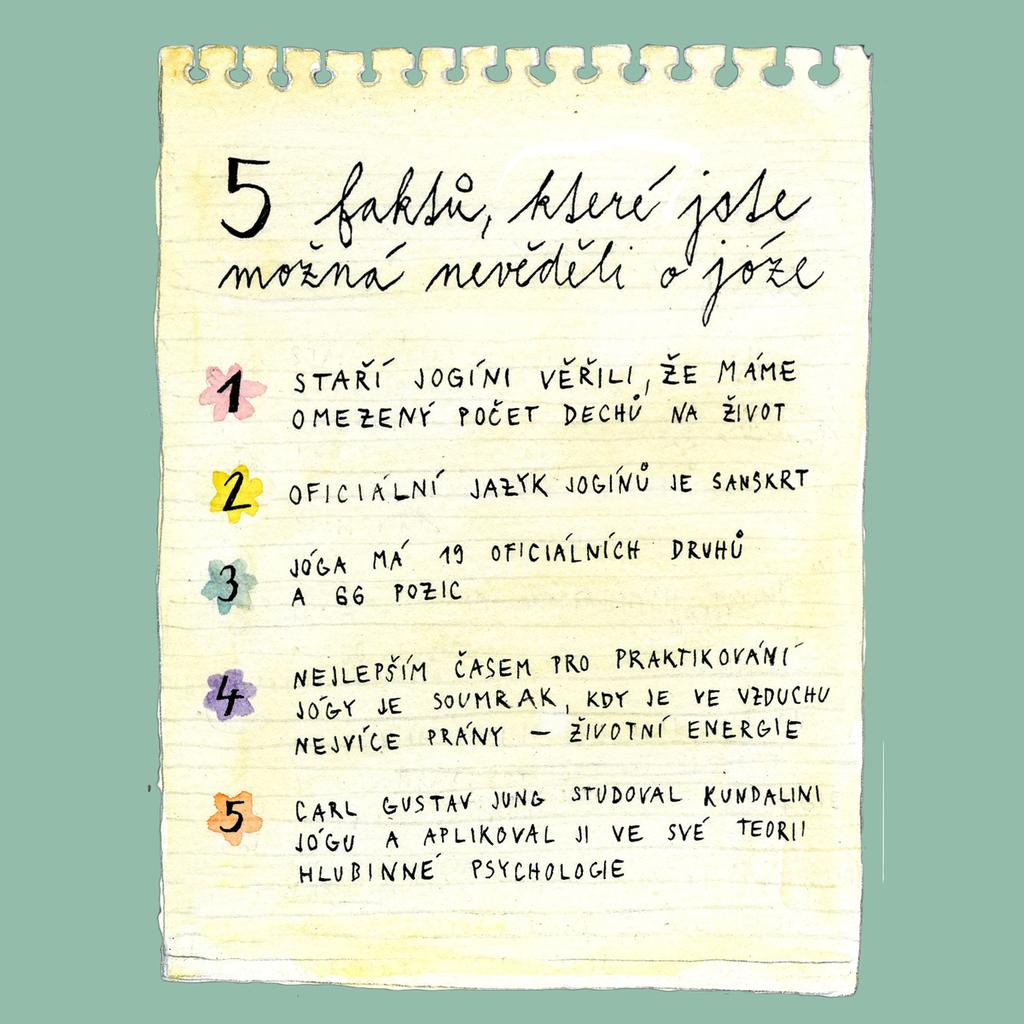 5 faktů, které jste
možná nevěděli o józe
1 STAŘÍ JOGÍNI VĚŘILI, ŽE MÁME
OMEZENÝ POČET DECHŮ NA ŽIVOT
2 OFICIÁLNÍ JAZYK JOGÍNŮ JE SANSKRT
3 JÓGA MÁ 19 OFICIÁLNÍCH DRUHŮ
A 66 POZIC
4 NEJLEPŠÍM ČASEM PRO PRAKTIKOVÁNÍ
JÓGY JE SOUMRAK, KDY JE VE VZDUCHU
NEJVÍCE PRÁNY – ŽIVOTNÍ ENERGIE
5 CARL GUSTAV JUNG STUDOVAL KUNDALINI
JÓGU A APLIKOVAL JI VE SVÉ TEORII
HLUBINNÉ PSYCHOLOGIE